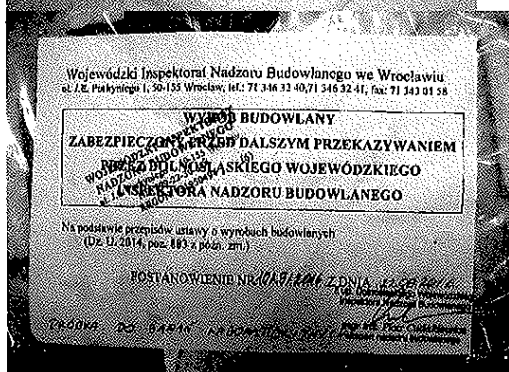 Wojewódzki Inspektorat Nadzoru Budowlanego we Wrocławiu
ul. J.E. Purkyniego 1, 50-155 Wrocław, tel.: 71 346 32 40, 71 346 32 41, fax: 71 343 01 58
WYRÓB BUDOWLANY
ZABEZPIECZONY PRZED DALSZYM PRZEKAZYWANIEM
PRZEZ DOLNOŚLĄSKIEGO WOJEWÓDZKIEGO
INSPEKTORA NADZORU BUDOWLANEGO
WOJEWÓDZKI INSPEKTORAT
NADZORU BUDOWLANEGO
Na podstawie przepisów ustawy o wyrobach budowlanych
(Dz. U. 2014, poz. 883 z późn. zm.)
POSTANOWIENIE NR Z DNIA
PRÓBKA DO BADAŃ